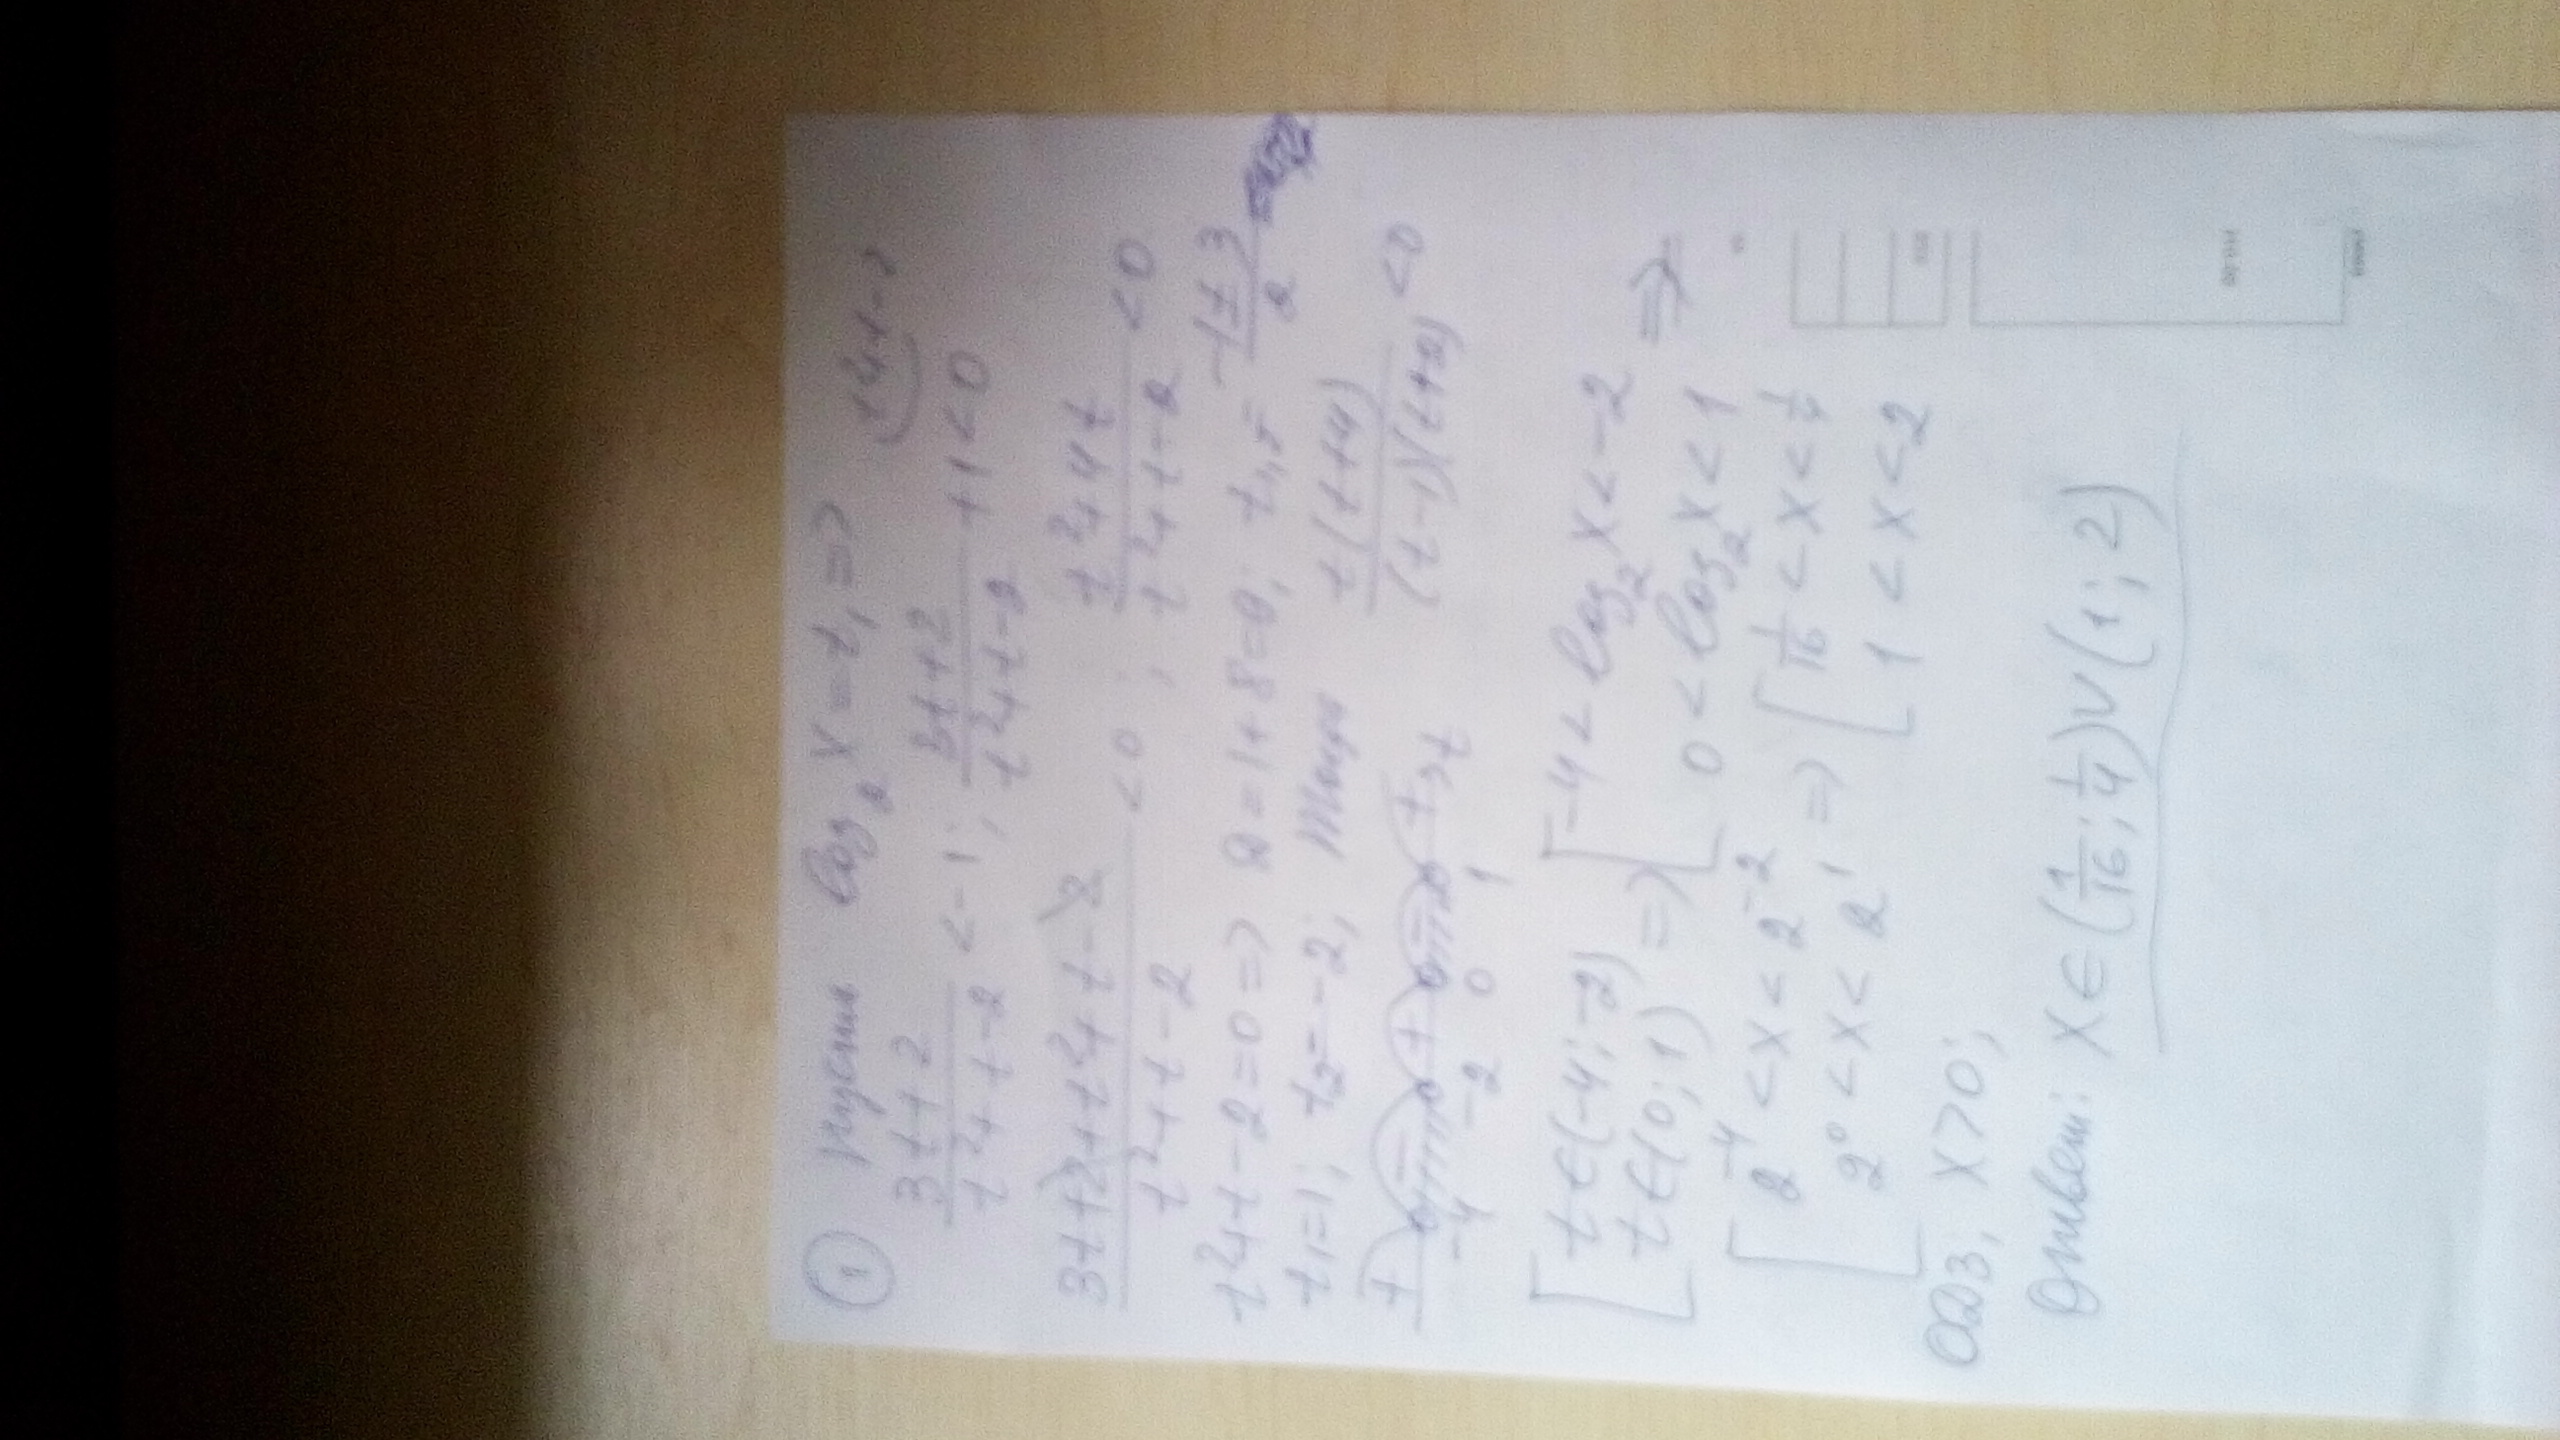 ① Пусть log₂ x = t, =>
(t²+t-2
(3t+2)/(t²+t-2) < -1; (3t+2)/(t²+t-2) + 1 < 0
(3t+2+t²+t-2)/(t²+t-2) < 0; (t²+4t)/(t²+t-2) < 0
t²+t-2=0 => D=1+8=9; t₁,₂ = (-1±3)/2
t₁=1; t₂=-2; Тогда t(t+4)/((t-1)(t+2)) < 0
+ - + - + > t
-4 -2 0 1
[ t∈(-4;-2) => [ -4 < log₂ x < -2 =>
t∈(0;1) 0 < log₂ x < 1
[ 2⁻⁴ < x < 2⁻² => [ 1/16 < x < 1/4
2⁰ < x < 2¹ 1 < x < 2
ОДЗ, x>0;
Ответ: x ∈ (1/16; 1/4) ∪ (1; 2)